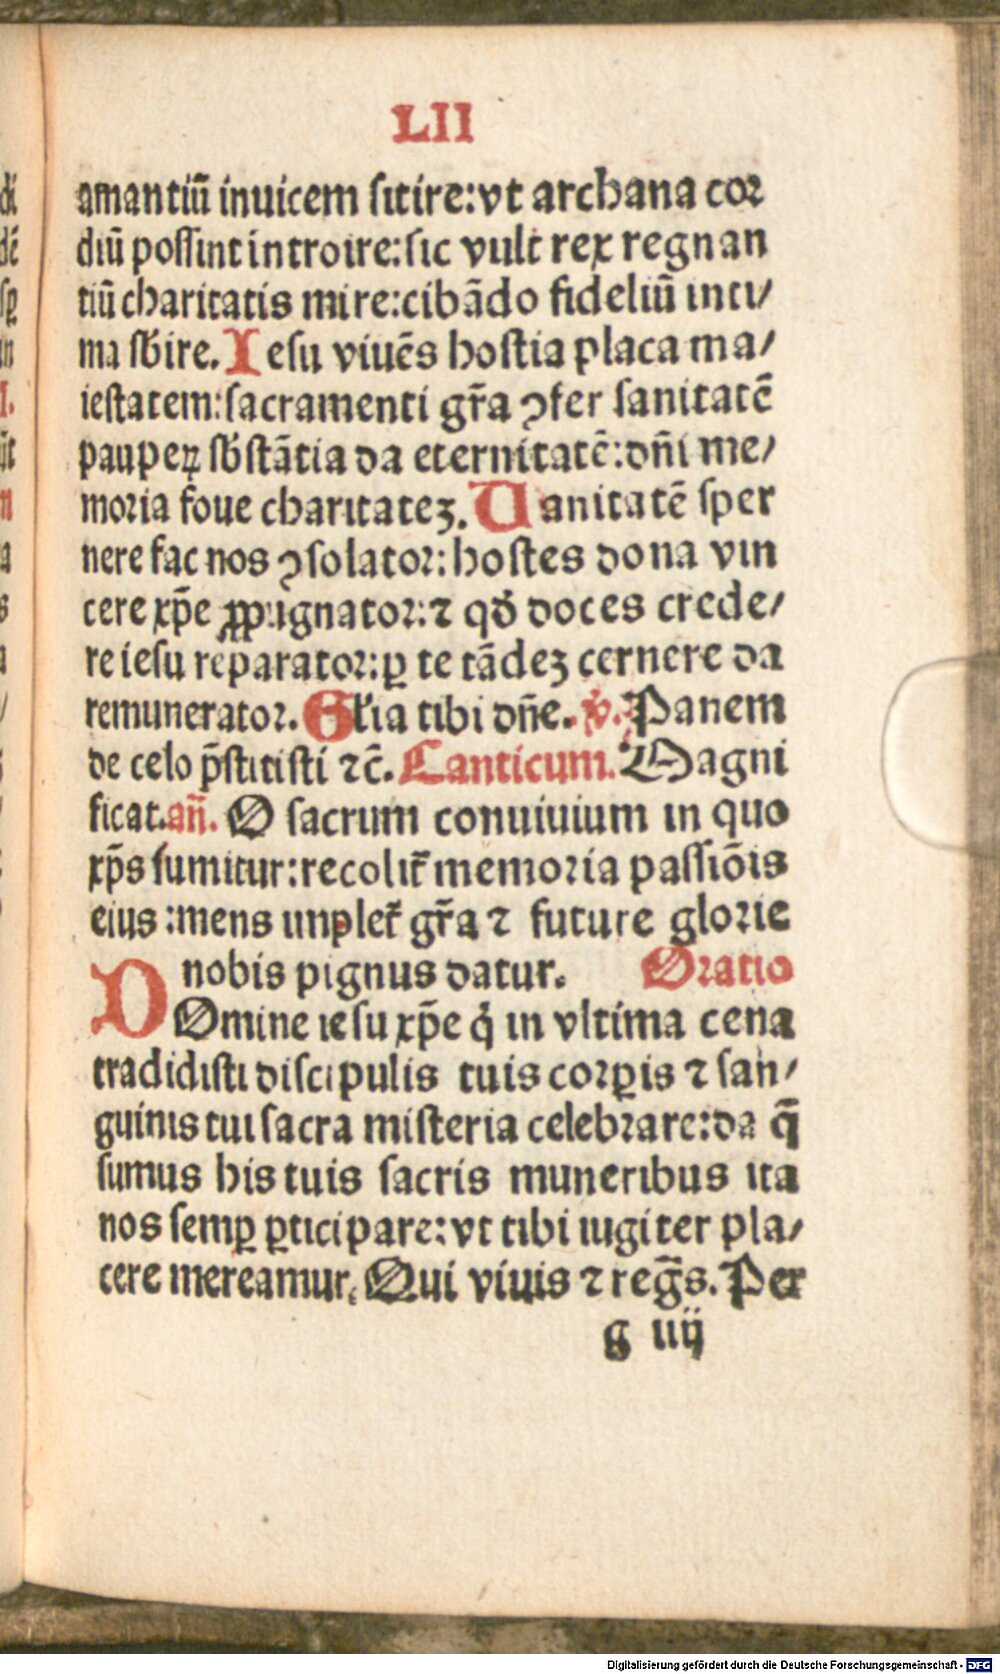 LII
amantiū inuicem sitire:vt archana cor
diū possint introire:sic vult rex regnan
tiū charitatis mire:cibādo fideliū inti/
ma sb̄ire. Iesu viuēs hostia placa ma/
iestatem:sacramenti gr̄a ꝯfer sanitatē
pauperꝝ sb̄stātia da eternitatē:dn̄i me/
moria foue charitatez. Uanitatē sper
nere fac nos ꝯsolator:hostes dona vin
cere xp̄e ꝓpugnator:⁊ qd̄ doces crede/
re iesu reparator:ꝑ te tādez cernere da
remunerator. Gl̄ia tibi dn̄e. v̄. Panem
de celo p̄stitisti ⁊c̄. Canticum. Magni
ficat. an̄. O sacrum conuiuium in quo
xp̄s sumitur:recolit᷑ memoria passiōis
eius :mens implet᷑ gr̄a ⁊ future glorie
nobis pignus datur. Oratio
DOmine iesu xp̄e q̇ in vltima cena
tradidisti discipulis tuis corꝑis ⁊ san/
guinis tui sacra misteria celebrare:da q̄
sumus his tuis sacris muneribus ita
nos semꝑ ꝑticipare:vt tibi iugiter pla/
cere mereamur. Qui viuis ⁊ reḡs. Per
g iiij
Digitalisierung gefördert durch die Deutsche Forschungsgemeinschaft - DFG